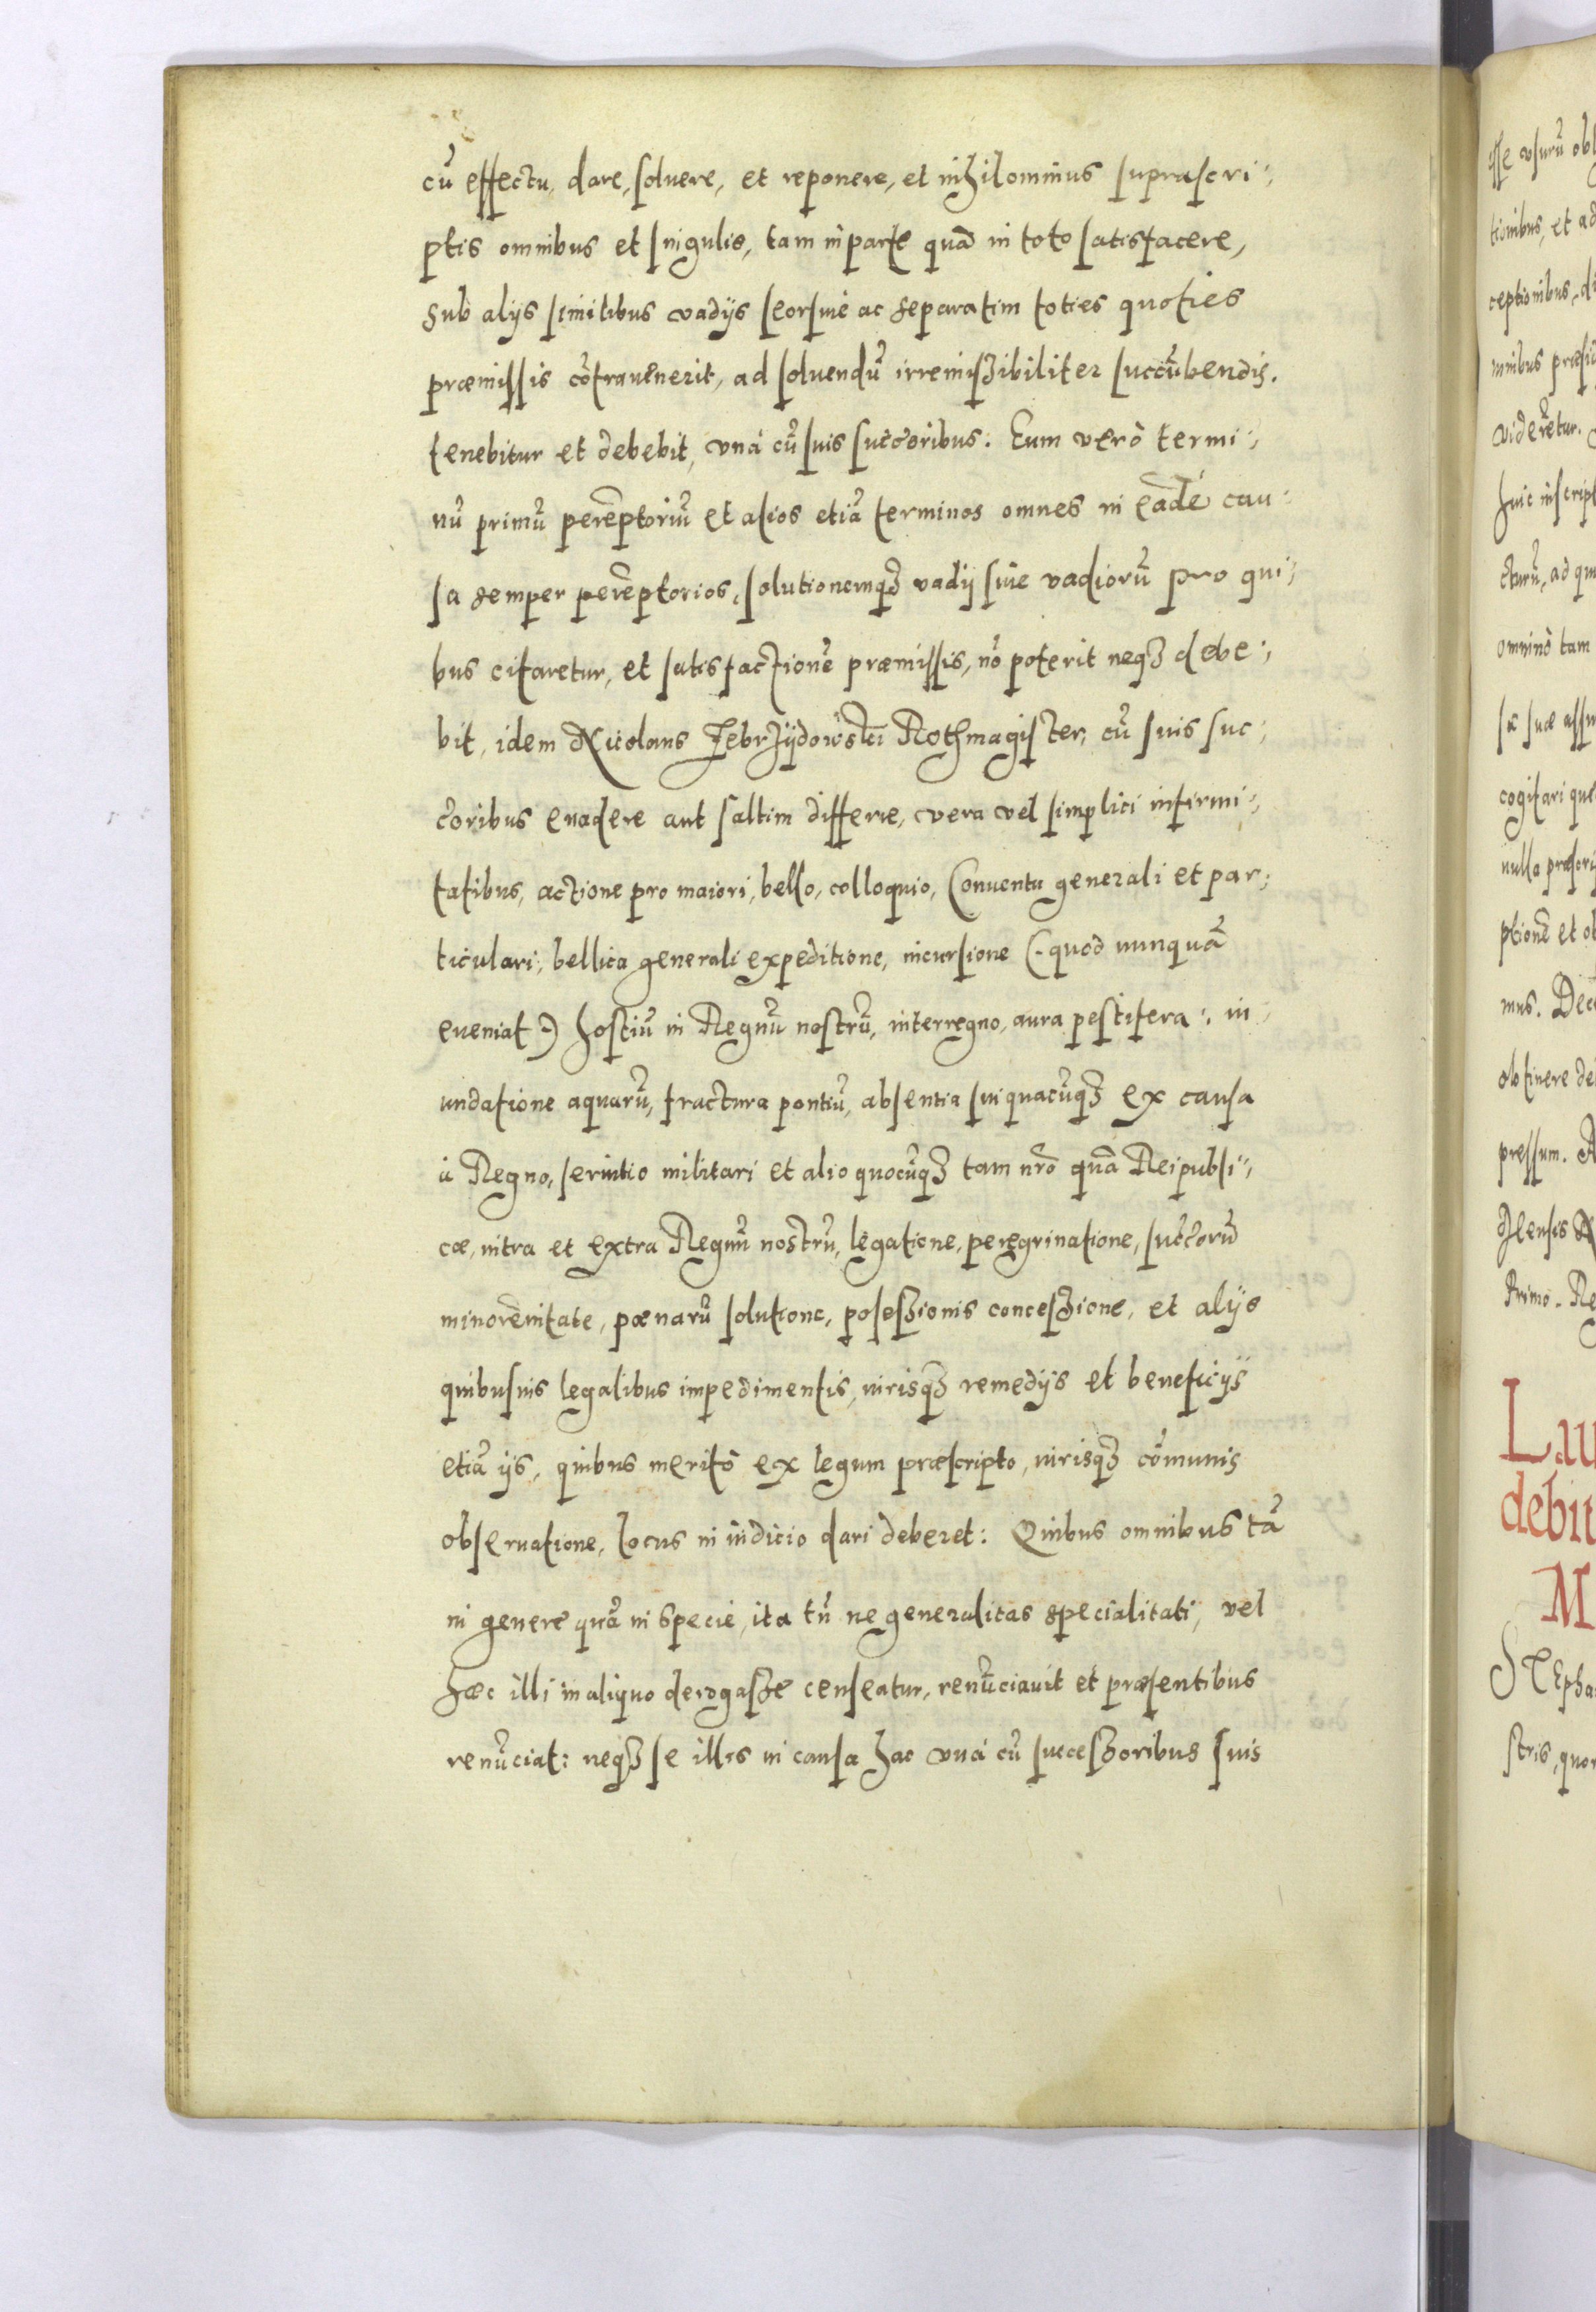 cũ effectu, dare, soluere, et reponere, et nihilominus suprascri:,
ptis omnibus et singulis, tam in parte quã in toto satisfacere,
sub alijs similibus vadijs seorsiuè ac separatim toties quoties
præmissis cõtrauenerit, ad soluendũ irremissibiliter succũbendis.
tenebitur et debebit, vnà cũ suis succoribus: Eum verò termi:,
nũ primũ perẽptoriũ et alios etiã terminos omnes in eãdẽ cau:
sa semper perẽptorios, solutionemq3 vadij siue vadiorũ pro qui:,
bus citaretur, et satisfactionẽ præmissis, nõ poterit neq3 debe:,
bit, idem Nicolaus Zebrzijdowski Rothmagister, cũ suis suc:,
coribus euadere aut saltim differre, vera vel simplici infirmi:,
tatibus, actione pro maiori, bello, colloquio, Conuentu generali et par:,
ticulari, bellica generali expeditione, incursione (. quod nunquã
eueniat .) hostiũ in Regnũ nostrũ, interregno, aura pestifera, in:
undatione aquarũ, fractura pontiũ, absentia sui quacũq3 ex causa
à Regno, seruitio militari et alio quocũq3 tam nrõ quã Reipubli:,
cæ, intra et extra Regnũ nostrũ, legatione, peregrinatione, succorũ
minorẽnitate, pœnarũ solutione, posessionis concessione, et alijs
quibusuis legalibus impedimentis, iurisq3 remedijs et beneficijs
etiã ijs, quibus meritò ex legum præscripto, iurisq3 cõmunis
obseruatione, locus in iudicio dari deberet: Quibus omnibus tã
in genere quã in specie, ita tñ ne generalitas specialitati, vel
hæc illi in aliquo derogasse censeatur, renũciauit et præsentibus
renũciat: neq3 se illis in causa hac vnà cũ successoribus suis
sse vsurũ obl
tionibus, et ad
ceptionibus, di
minibus præsi
viderẽtur.
huic inscript
cturũ, ad qu
omninò tam
sæ suæ assu
cogitari que
nulla præscri
ptionẽ et ob
mus. Dec
obtinere de
pressum. A
Primo. Re
Lau
debit
M
STEpha
stris, quor